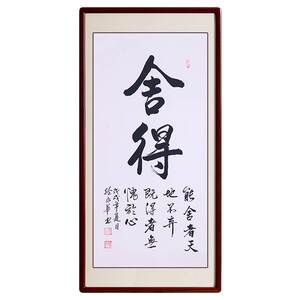 舍得
能舍者天
地不弃
既得者無
愧於心
戊戌年夏日